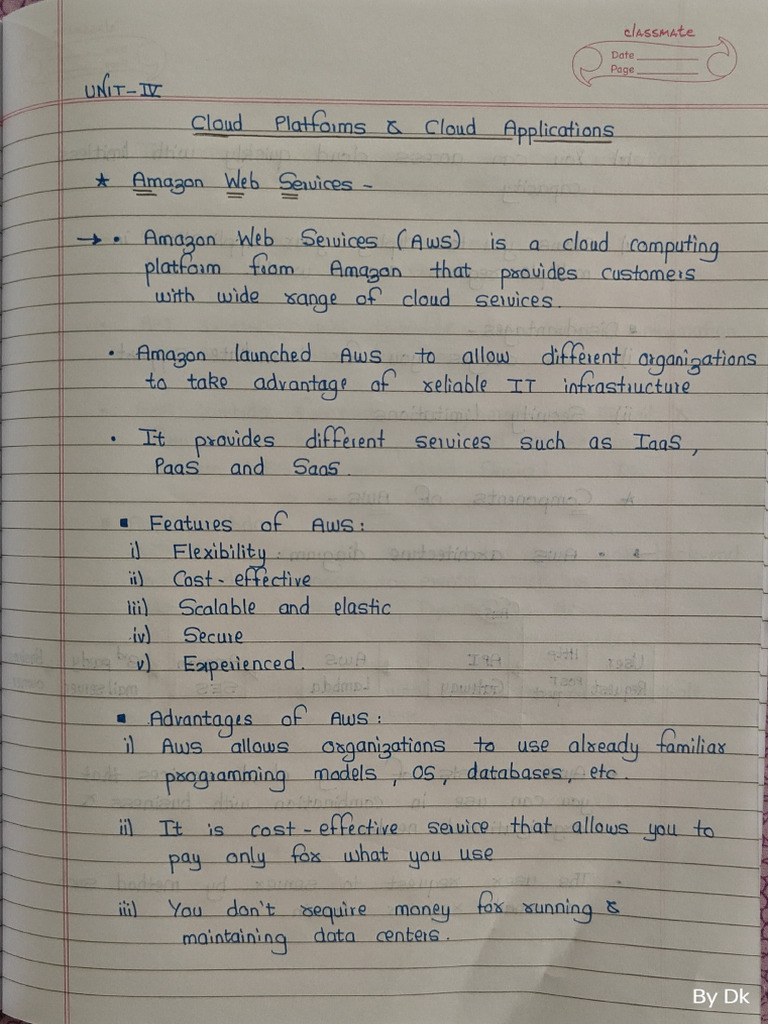 classmate
Date
Page
UNIT-IV
Cloud Platforms & Cloud Applications
★ Amazon Web Services -
→ • Amazon Web Services (AWS) is a cloud computing
platform from Amazon that provides customers
with wide range of cloud services.
• Amazon launched AWS to allow different organizations
to take advantage of reliable IT infrastructure
• It provides different services such as IaaS,
PaaS and SaaS.
▪ Features of AWS:
i) Flexibility
ii) Cost-effective
iii) Scalable and elastic
iv) Secure
v) Experienced.
▪ Advantages of AWS:
i) AWS allows organizations to use already familiar
programming models, OS, databases, etc.
ii) It is cost-effective service that allows you to
pay only for what you use
iii) You don't require money for running &
maintaining data centers.
By Dk